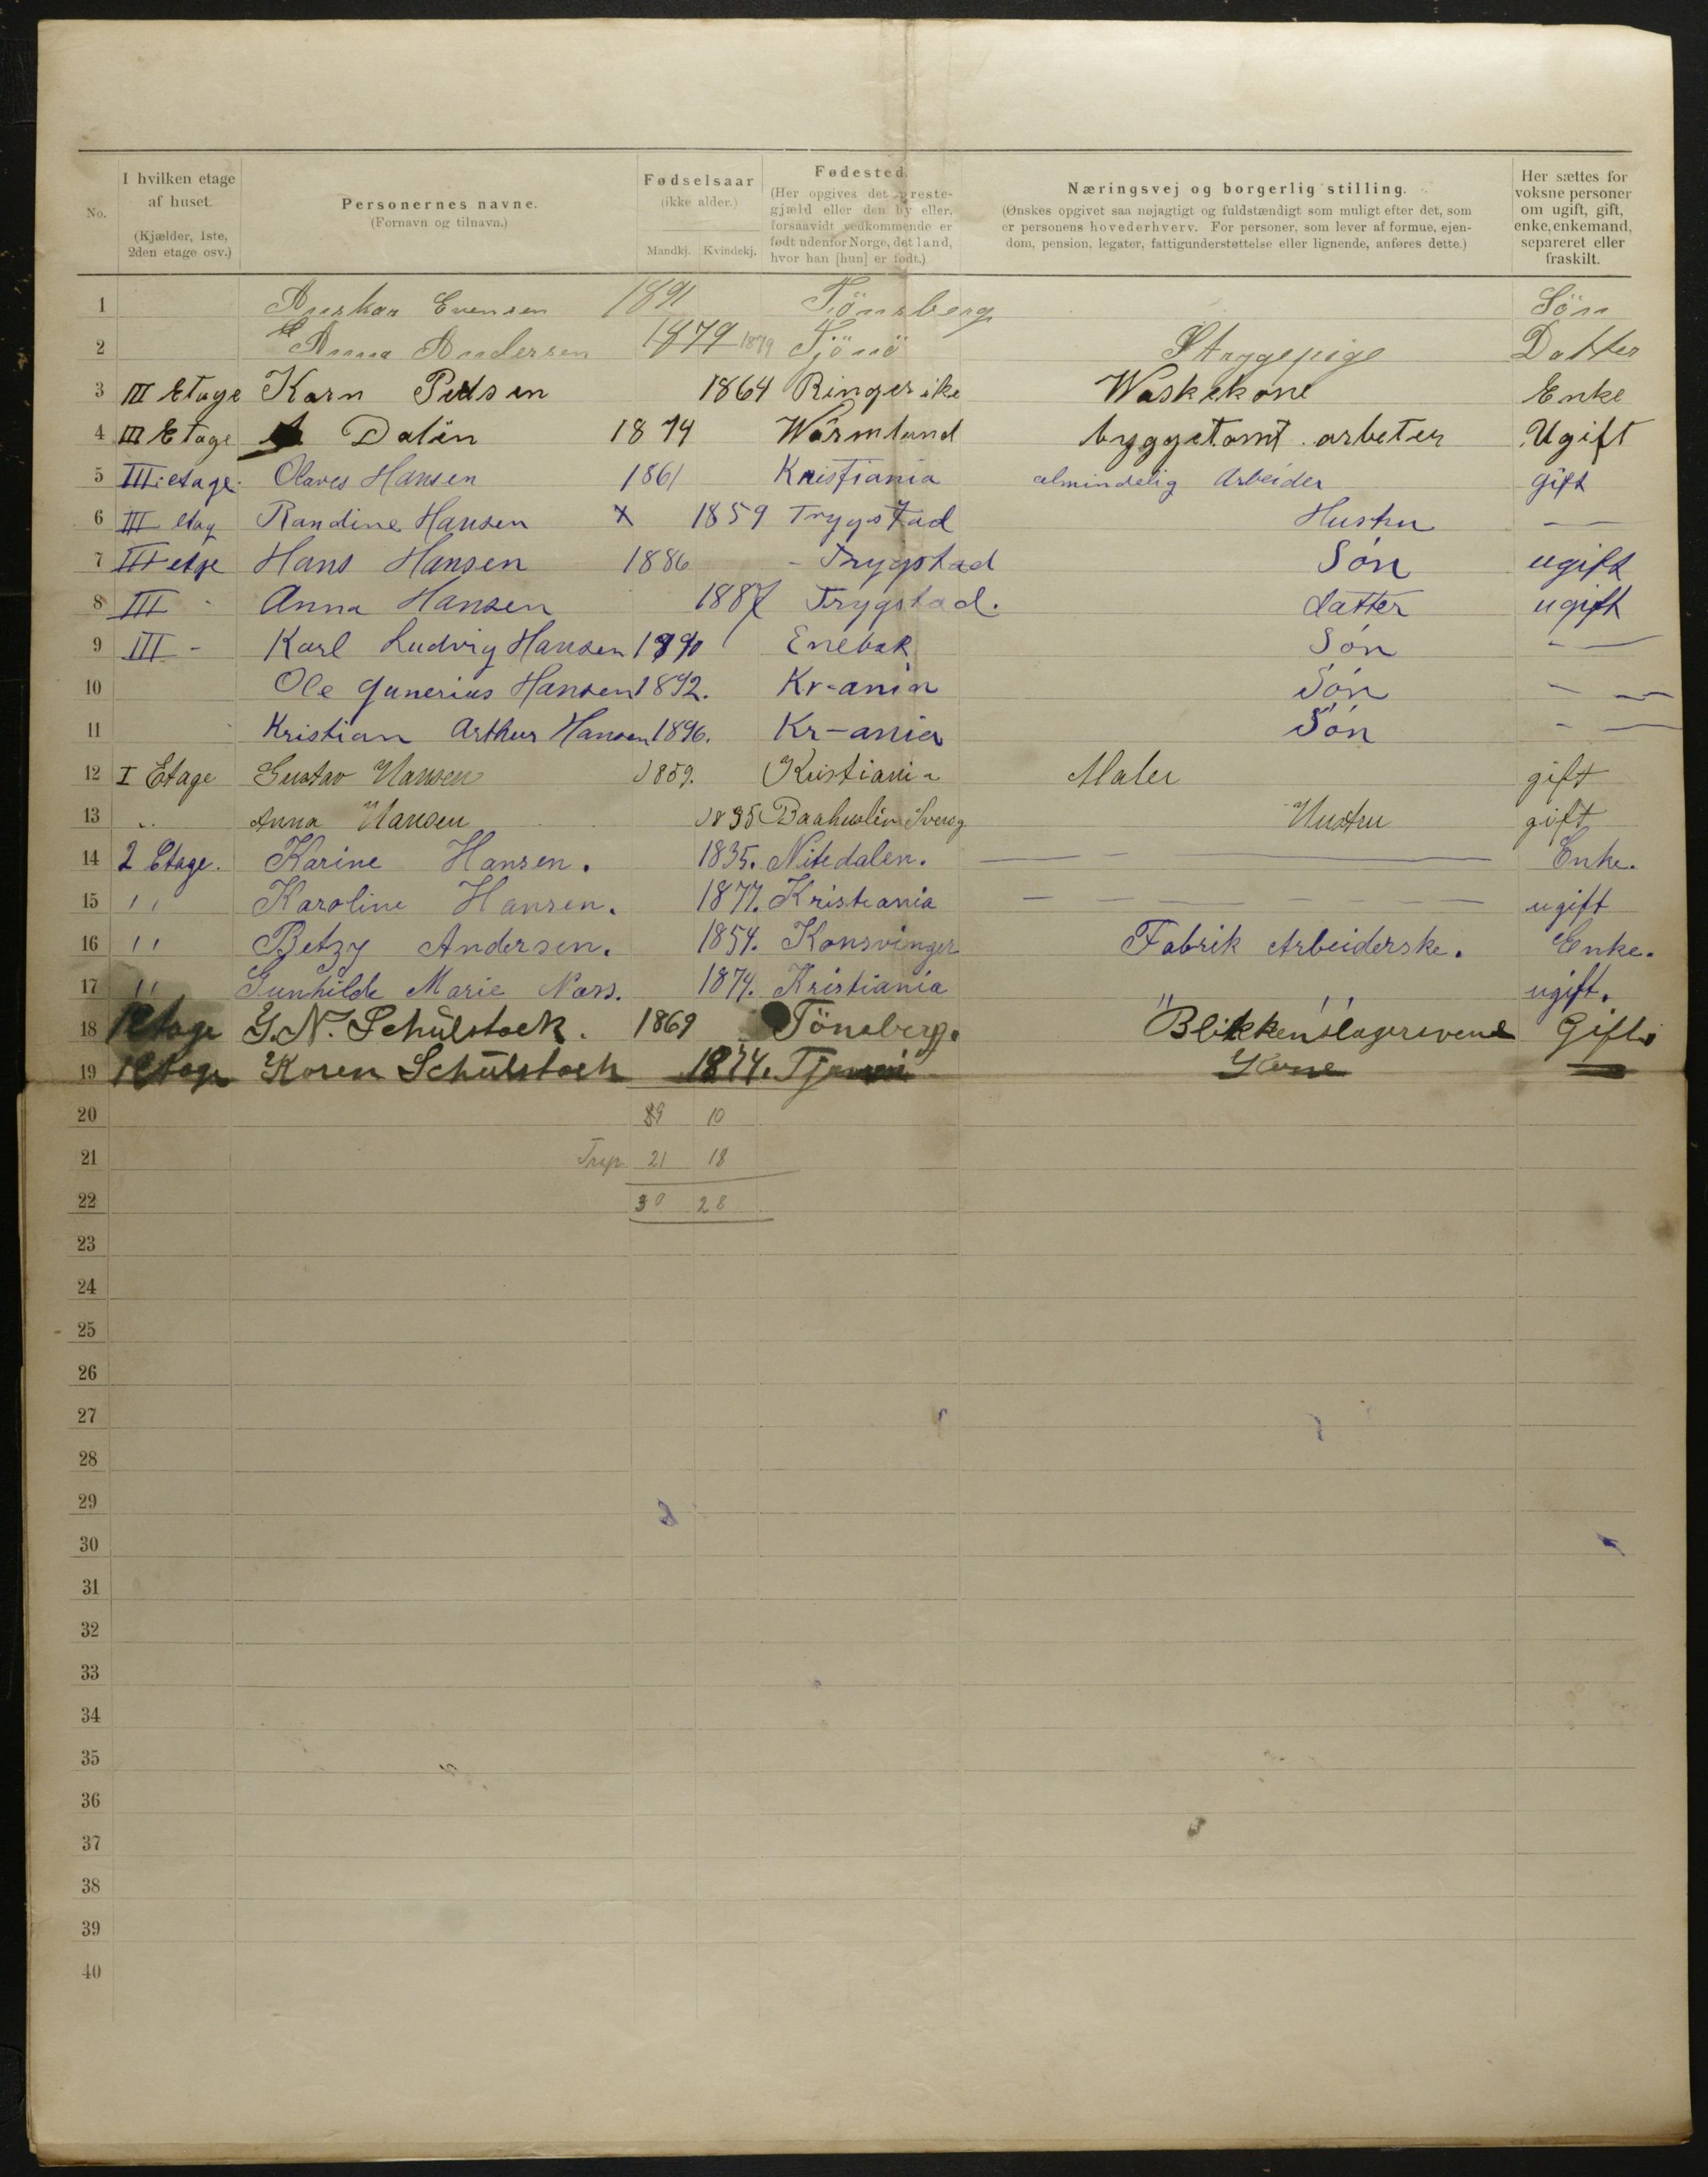 No.
I hvilken etage af huset.
(Kjælder, 1ste, 2den etage osv.)
Personernes navne.
(Fornavn og tilnavn.)
Fødselsaar
(ikke alder.)
Mandkj. Kvindekj.
Fødested.
(Her opgives det prestegjæld eller den by eller, forsaavidt vedkommende er født udenfor Norge, det land, hvor han [hun] er født.)
Næringsvej og borgerlig stilling.
(Ønskes opgivet saa nøjagtigt og fuldstændigt som muligt efter det, som er personens hovederhverv. For personer, som lever af formue, ejendom, pension, legater, fattigunderstøttelse eller lignende, anføres dette.)
Her sættes for voksne personer om ugift, gift, enke, enkemand, separeret eller fraskilt.
1 Evensen 1891 Tönsberg Sön
2 Anna Andersen 1879 1879 Tjömö Strygepige Datter
3 III Etage Karn 1864 Ringerike Waskekone Enke
4 III Etage Dalén 1874 Wärmland byggetomt arbeter Ugift
5 III. etage. Olaves Hansen 1861 Kristiania almindelig Arbeider gift
6 III etag Randine Hansen x 1859 Trygstad Hustru —
7 III etge Hans Hansen 1886 - Trygstad Søn ugift
8 III - Anna Hansen 1887 Trygstad. datter ugift
9 III - Karl Ludvig Hansen 1890 Enebak Søn - —
10 Ole Gunerius Hansen 1892. Kr-ania Søn - —
11 Kristian Arthur Hansen 1896. Kr-ania Søn - —
12 I Etage Gustav Hansen 1859. Kristiania Maler gift
13 " Anna Hansen 1835 Baahuslän Hustru gift
14 2 Etage. Karine Hansen. 1835. Nitedalen. — - — Enke.
15 " Karoline Hansen. 1877. Kristiania — — — — — — ugift
16 " Betzy Andersen. 1854. Konsvinger Fabrik Arbeiderske. Enke.
17 " Gunhilde Marie Næss. 1874. Kristiania " " ugift.
18 1 Etage G. N. Schülstock. 1869 Tönsberg. Blikkenslagersvend Gift.
19 1 Etage Karen Schülstock 1874. Kone —
20 89 10
21 21 18
22 30 28
23
24
25
26
27
28
29
30
31
32
33
34
35
36
37
38
39
40